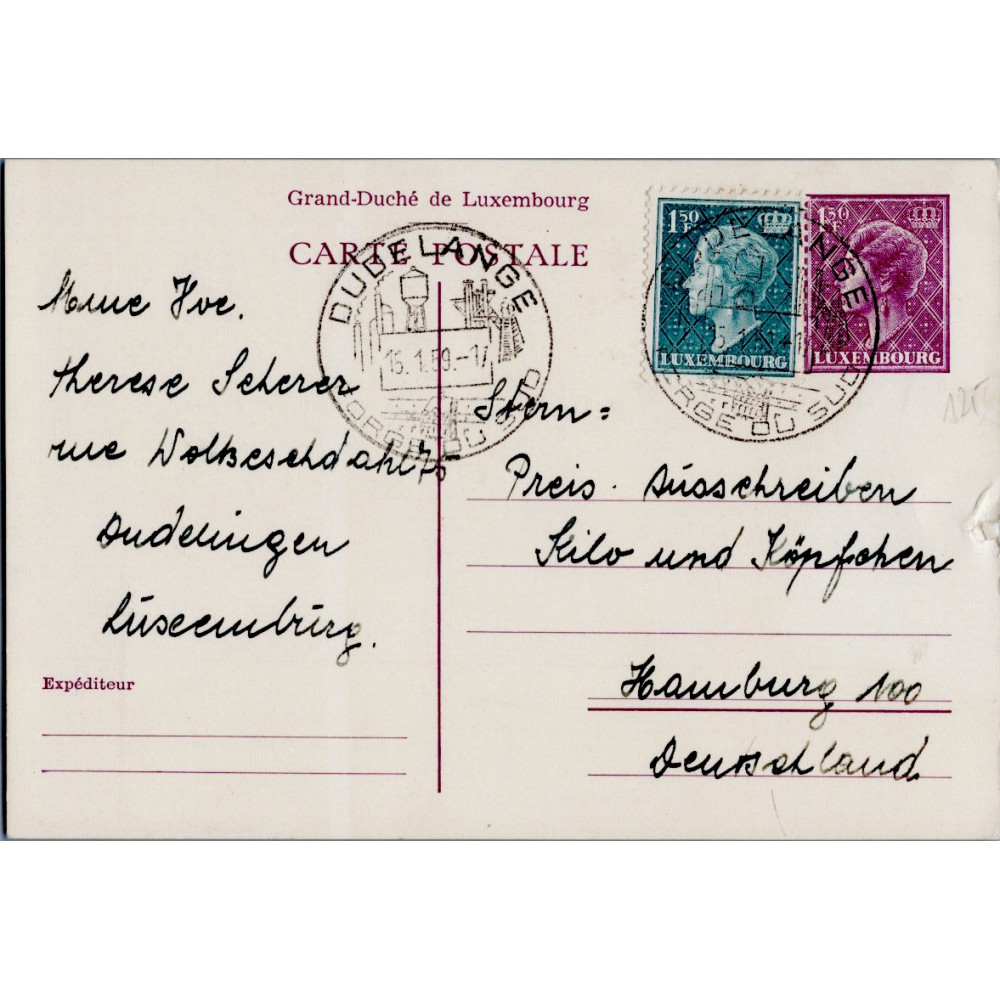 Grand-Duché de Luxembourg
CARTE POSTALE
DUDELANGE
15.1.59.-17
FORGE DU SUD
1.50 F
LUXEMBOURG
1.50 F
LUXEMBOURG
DUDELANGE
FORGE DU SUD
Mme Jve.
Therese Scherer
rue Wolkeschdahl 75
Dudelingen
Lüxemburg.
Expéditeur
Stern=
Preis. Ausschreiben
Kilo und Köpfchen
Hamburg 100
Deutschland